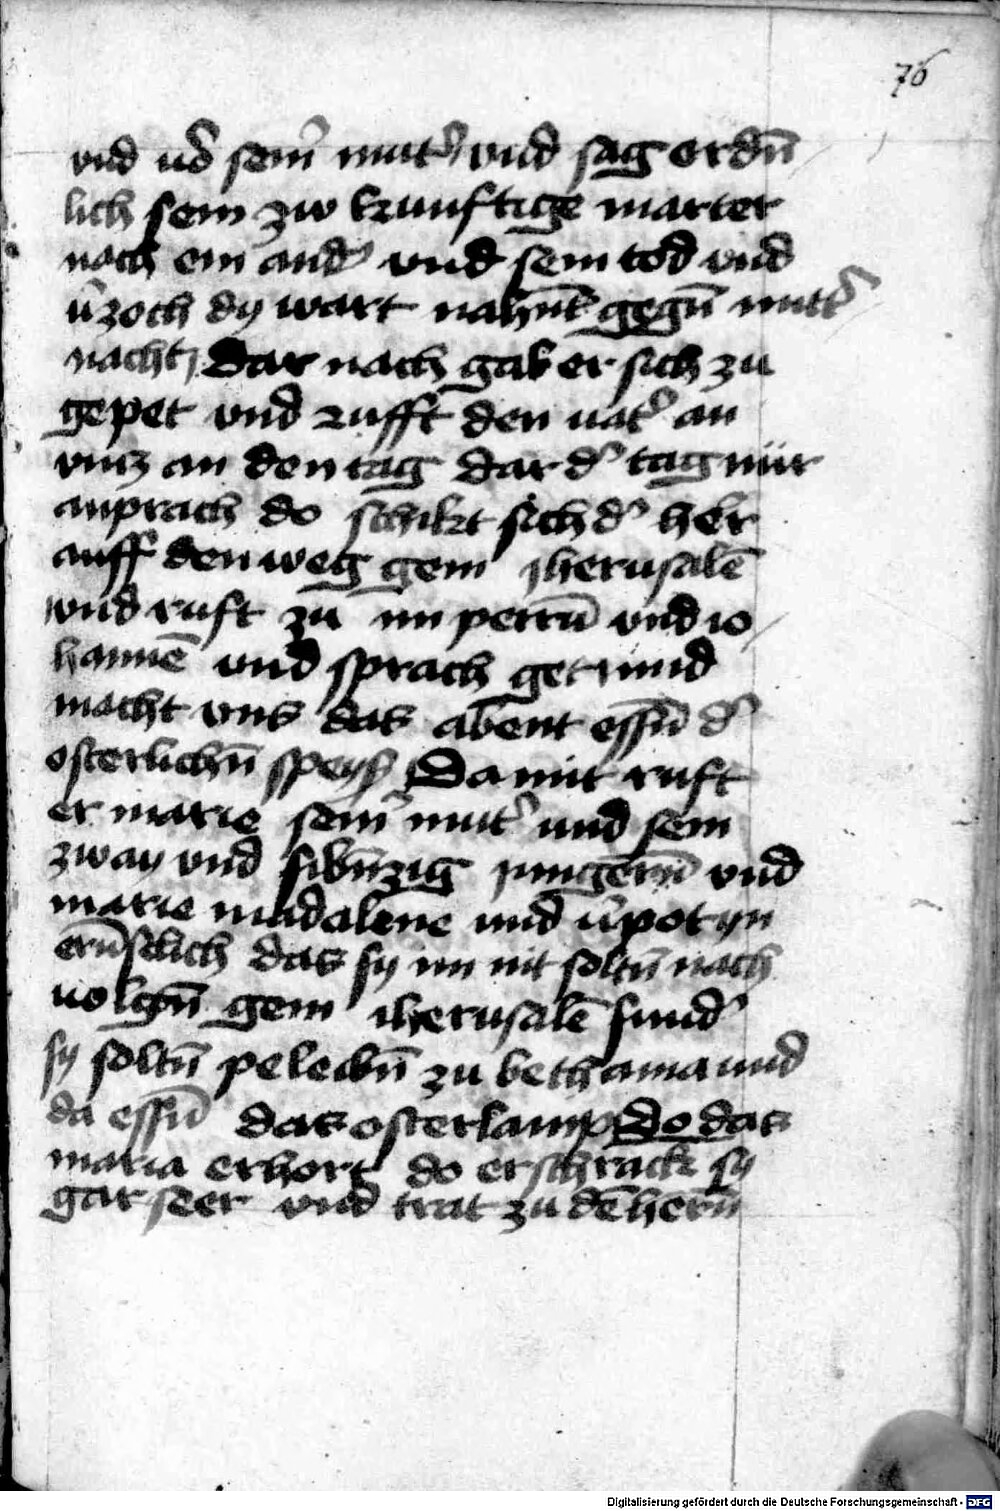 76
vnd vō sein̄ muter vnd sag ordn̄
lich sein zw kunfftige marter
nach ein andͤ vnd sein tod vnd
v̄zoch dy wart nahn̄t gegn̄ mittͤ
nacht Dar nach gab er sich zu
gepet vnd rufft den vatͤ an
vncz an den tag dar dͤ tag nür
anprach do schikt sich dͤ her
auff den weg gein jherusalē
vnd ruft zu im petrū vnd io
hannē vnd sprach get und
macht vns das abent essn̄ dͤ
osterlichn̄ speyß Da mit ruft
er marie sein̄ mutͤ und sein
zway vnd sibn̄zig jungern̄ vnd
marie madalene und v̄pot yn
ern̄stlich das sy im nit soltn̄ nach
uolgn̄ gein iherusalē sundͤ
sy soltn̄ peleibn̄ zu bethania und
da essn̄ das osterlamp Do das
maria erhort do erschrackt sy
gar seer vnd trat zu dē hern̄
Digitalisierung gefördert durch die Deutsche Forschungsgemeinschaft - DFG